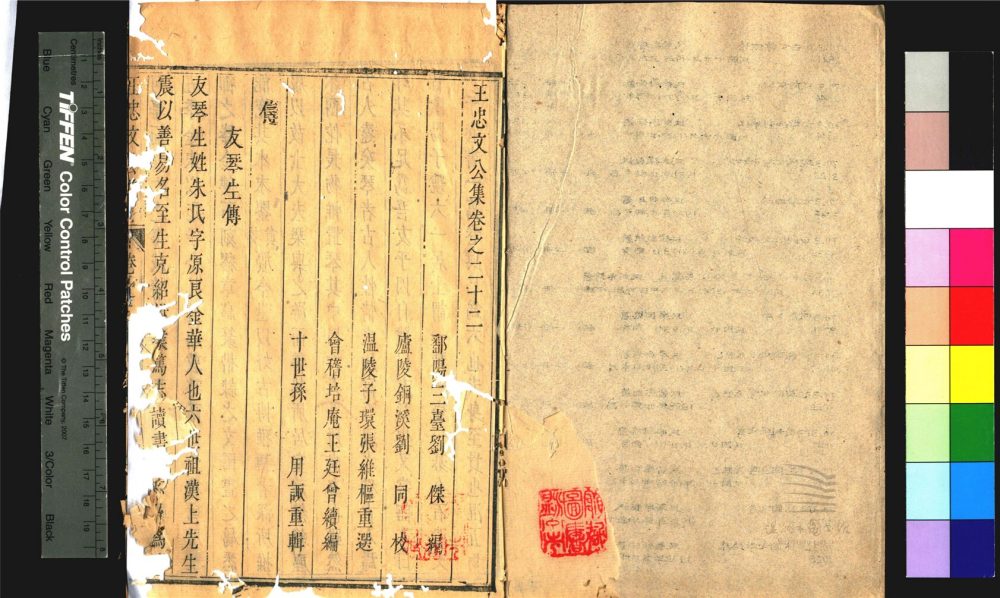 王忠文公集卷之二十二
鄱陽三臺劉 傑 編
廬陵銅溪劉 同 校
温陵子環張維樞重選
會稽培庵王廷曾續編
十世孫 用誠重輯
傳
友琴生傳
友琴生姓朱氏字源良金華人也六世祖漢上先生
震以善易名至生克紹 業篤志讀書
王忠文 卷
Centimetres
TIFFEN Color Control Patches
© The Tiffen Company, 2007
Blue
Cyan
Green
Yellow
Red
Magenta
White
3/Color
Black